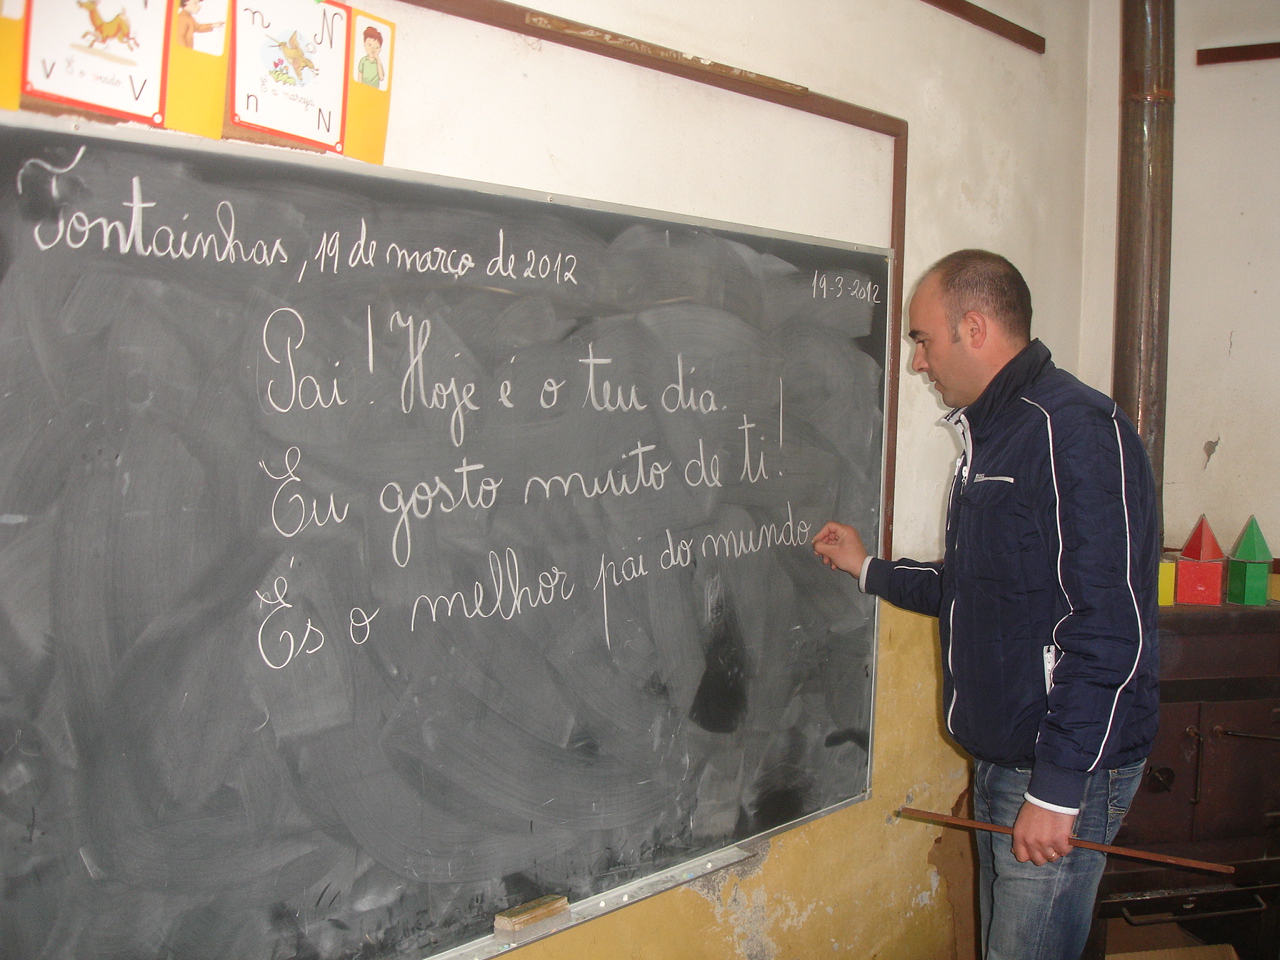 v V
É o veado
n N
n N
Fontainhas, 19 de março de 2012
19-3-2012
Pai! Hoje é o teu dia.
Eu gosto muito de ti!
És o melhor pai do mundo